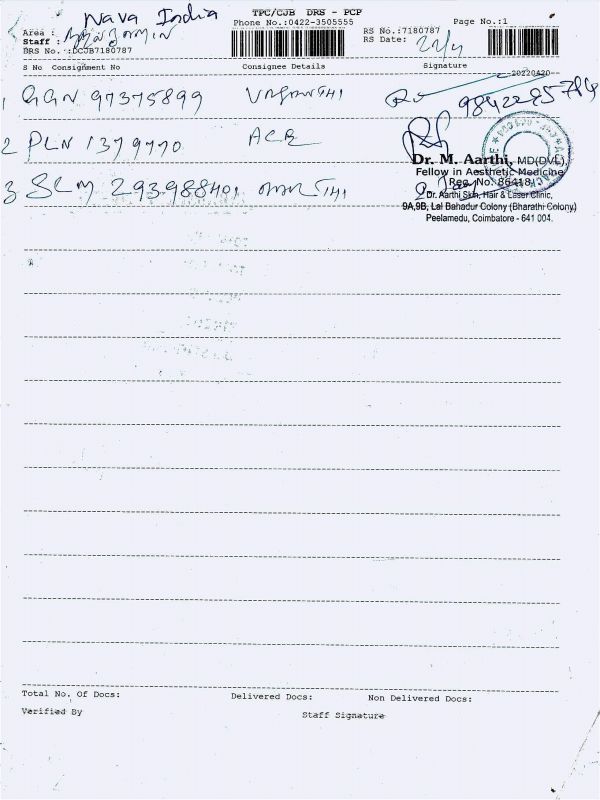 Nava India
TPC/CJB DRS - PCP
Phone No.:0422-3505555
Page No.:1
Area :
Staff :
DRS No.:DCJB7180787
RS No.:7180787
RS Date: 22/4
S No Consignment No Consignee Details Signature
20220420
1 GGN 97375899 VASANTHI
2 PLN 1379770 ACE
3 SLM 293988401
Dr. M. Aarthi, MD(DVL),
Fellow in Aesthetic Medicine
Reg. No: 86418
Dr. Aarthi Skin, Hair & Laser Clinic,
9A,9B, Lal Bahadur Colony (Bharathi Colony)
Peelamedu, Coimbatore - 641 004.
Total No. Of Docs: Delivered Docs: Non Delivered Docs:
Verified By Staff Signature